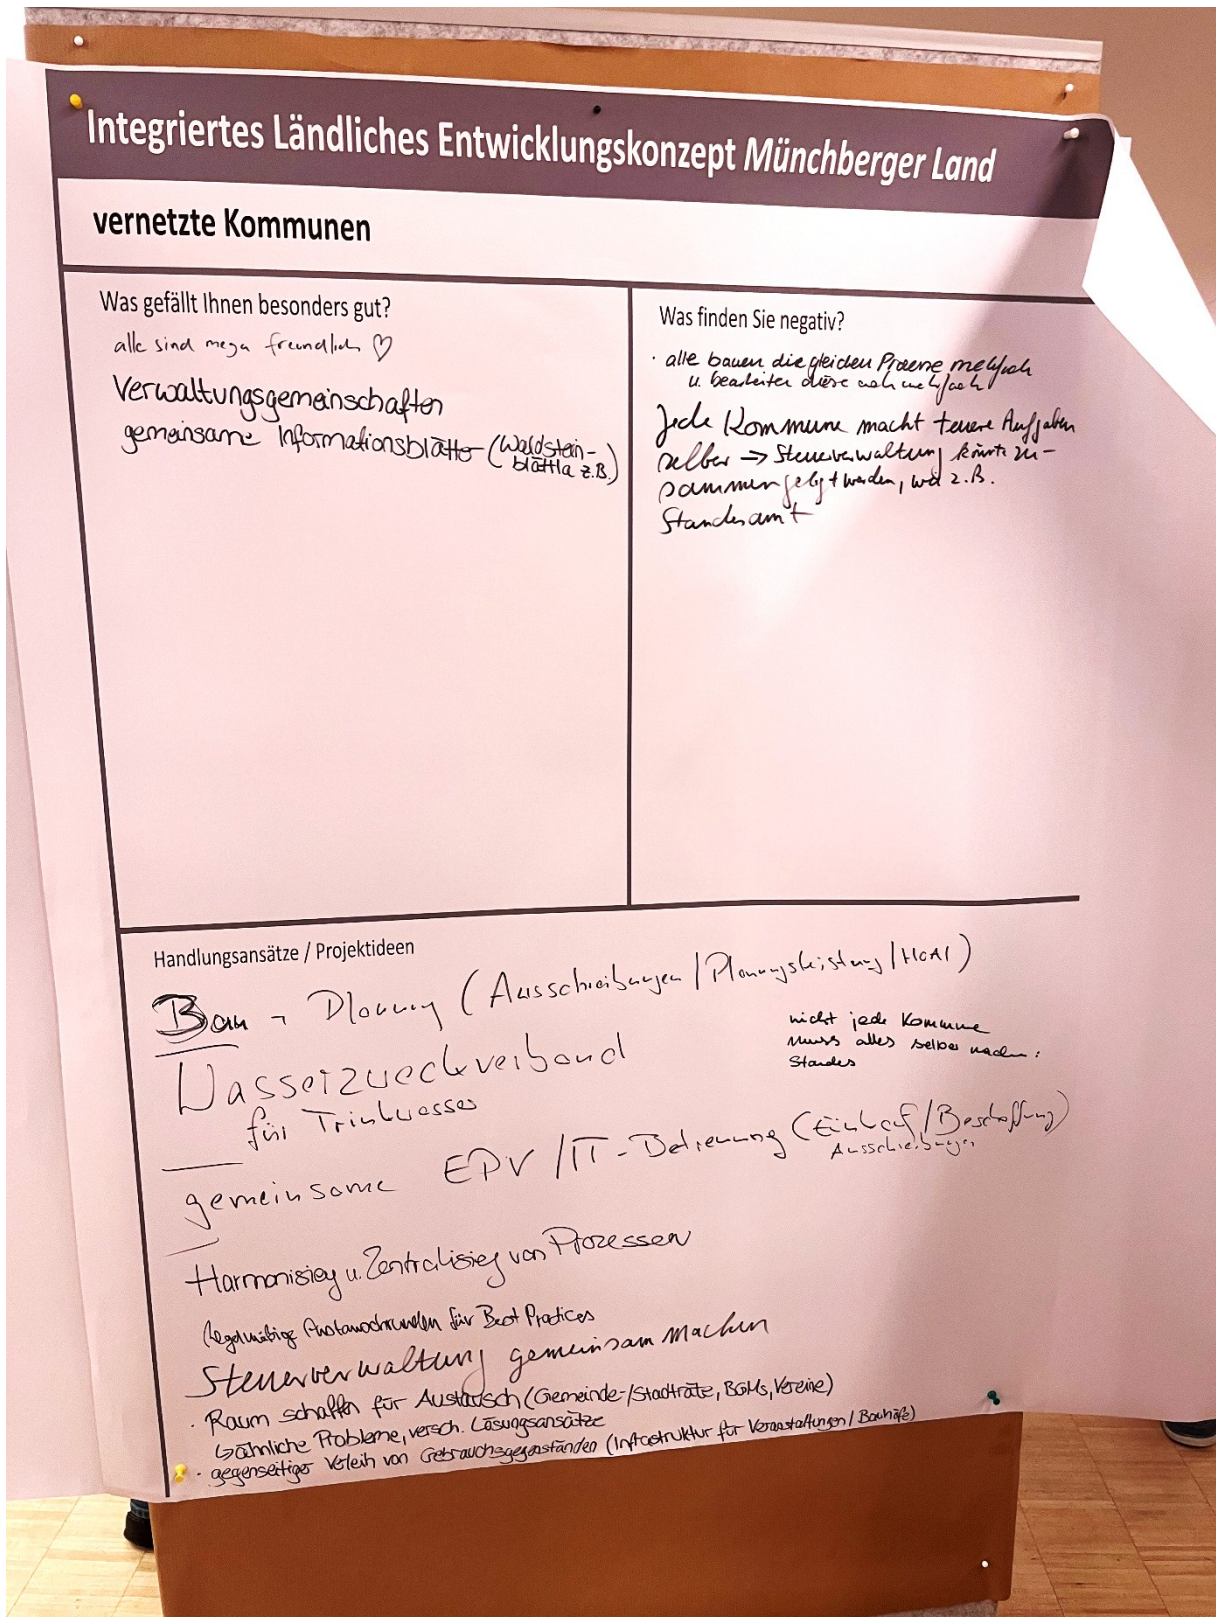 Integriertes Ländliches Entwicklungskonzept Münchberger Land
vernetzte Kommunen
Was gefällt Ihnen besonders gut?
alle sind mega freundlich ♡
Verwaltungsgemeinschaften
gemeinsame Informationsblätter (Waldstein-
blättla z.B.)
Was finden Sie negativ?
· alle bauen die gleichen Prozesse mehrfach
u. bearbeiten diese auch mehrfach
Jede Kommune macht teuere Aufgaben
selber → Steuerverwaltung könnte zu-
sammengelegt werden, wie z.B.
Standesamt
Handlungsansätze / Projektideen
Bau - Planung (Ausschreibungen/Planungsleistung/HOAI)
nicht jede Kommune
muss alles selber machen:
Standes
Wasserzweckverband
für Trinkwasser
gemeinsame EDV/IT-Betreuung (Einkauf/Beschaffung)
Ausschreibungen
Harmonisieg u. Zentralisieg von Prozessen
Regelmäßige Austauschrunden für Best Practices
Steuerverwaltung gemeinsam machen
· Raum schaffen für Austausch (Gemeinde-/Stadträte, BGMs, Vereine)
↳ ähnliche Probleme, versch. Lösungsansätze
· gegenseitiger Verleih von Gebrauchsgegenständen (Infrastruktur für Veranstaltungen/Bauhöfe)